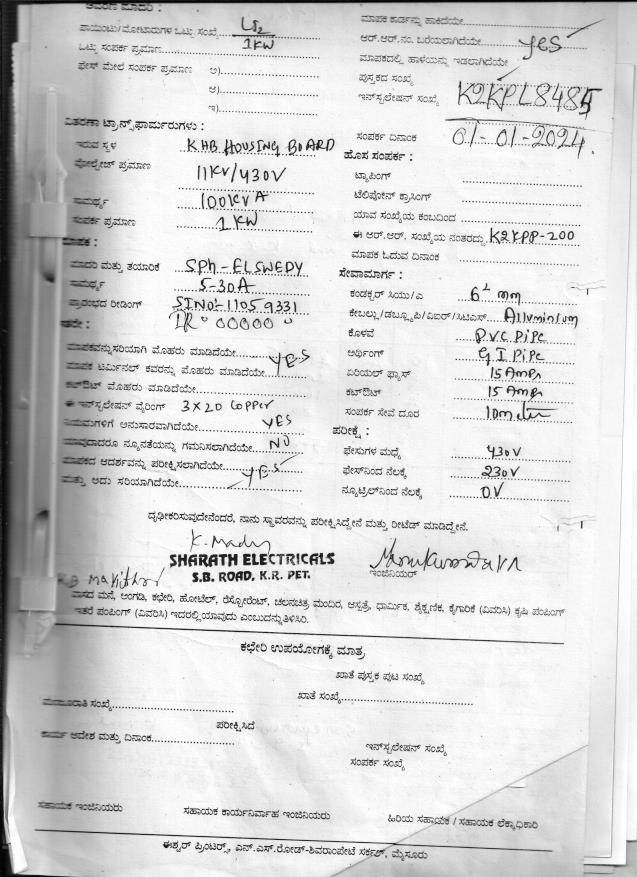 ಆವರಣ ಮಾದರಿ : LT2
ಪಾಯಿಂಟು/ಮೋಟಾರುಗಳ ಒಟ್ಟು ಸಂಖ್ಯೆ
ಒಟ್ಟು ಸಂಪರ್ಕ ಪ್ರಮಾಣ 1KW
ಫೇಸ್ ಮೇಲೆ ಸಂಪರ್ಕ ಪ್ರಮಾಣ ಅ)
ಆ)
ಇ)
ವಿತರಣಾ ಟ್ರಾನ್ಸ್‌ಫಾರ್ಮರುಗಳು :
ಇರುವ ಸ್ಥಳ KHB HOUSING BOARD
ವೋಲ್ಟೇಜ್ ಪ್ರಮಾಣ 11KV/430V
ಸಾಮರ್ಥ್ಯ 100KVA
ಸಂಪರ್ಕ ಪ್ರಮಾಣ 1KW
ಮಾಪಕ :
ಮಾದರಿ ಮತ್ತು ತಯಾರಿಕೆ SPh-ELSWEDY
ಸಾಮರ್ಥ್ಯ 5-30A
ಪ್ರಾರಂಭದ ರೀಡಿಂಗ್ SINO:-11059331
IR: 00000
ಇತರೇ :
ಮಾಪಕವನ್ನು ಸರಿಯಾಗಿ ಮೊಹರು ಮಾಡಿದೆಯೇ
ಮಾಪಕ ಟರ್ಮಿನಲ್ ಕವರನ್ನು ಮೊಹರು ಮಾಡಿದೆಯೇ YES
ಕಟ್‌ಔಟ್ ಮೊಹರು ಮಾಡಿದೆಯೇ
ಇನ್‌ಸ್ಟಲೇಷನ್ ವೈರಿಂಗ್ 3X20 COPPer
ನಿಯಮಗಳಿಗೆ ಅನುಸಾರವಾಗಿದೆಯೇ YES
ಯಾವುದಾದರೂ ನ್ಯೂನತೆಯನ್ನು ಗಮನಿಸಲಾಗಿದೆಯೇ NO
ಮಾಪಕದ ಆದರ್ಶವನ್ನು ಪರೀಕ್ಷಿಸಲಾಗಿದೆಯೇ YES
ಮತ್ತು ಅದು ಸರಿಯಾಗಿದೆಯೇ
ಮಾಪಕ ಕಾರ್ಡನ್ನು ಹಾಕಿದೆಯೇ
ಆರ್.ಆರ್.ನಂ. ಬರೆಯಲಾಗಿದೆಯೇ yes
ಮಾಪಕದಲ್ಲಿ ಹಾಳೆಯನ್ನು ಇಡಲಾಗಿದೆಯೇ
ಪುಸ್ತಕದ ಸಂಖ್ಯೆ
ಇನ್‌ಸ್ಟಲೇಷನ್ ಸಂಖ್ಯೆ K2KPL8485
ಸಂಪರ್ಕ ದಿನಾಂಕ 01-01-2024.
ಹೊಸ ಸಂಪರ್ಕ :
ಟ್ಯಾಪಿಂಗ್
ಟೆಲಿಫೋನ್ ಕ್ರಾಸಿಂಗ್
ಯಾವ ಸಂಖ್ಯೆಯ ಕಂಬದಿಂದ
ಈ ಆರ್.ಆರ್. ಸಂಖ್ಯೆಯ ನಂತರದ್ದು K2KPP-200
ಮಾಪಕ ಓದುವ ದಿನಾಂಕ
ಸೇವಾಮಾರ್ಗ :
ಕಂಡಕ್ಟರ್ ಸಿಯು/ಎ 6² mm
ಕೇಬಲ್ಲು/ಡಬ್ಲ್ಯೂಪಿ/ವಿಐಆರ್/ಸಿಟಿಎಸ್ Alluminium
ಕೊಳವೆ P.V.C PiPe
ಅರ್ಥಿಂಗ್ G.I PiPe
ಏರಿಯಲ್ ಫ್ಯೂಸ್ 15 Amps
ಕಟ್‌ಔಟ್ 15 Amps
ಸಂಪರ್ಕ ಸೇವೆ ದೂರ 10meter
ಪರೀಕ್ಷೆ :
ಫೇಸುಗಳ ಮಧ್ಯೆ 430V
ಫೇಸ್‌ನಿಂದ ನೆಲಕ್ಕೆ 230V
ನ್ಯೂಟ್ರಲ್‌ನಿಂದ ನೆಲಕ್ಕೆ 0V
ದೃಢೀಕರಿಸುವುದೇನೆಂದರೆ, ನಾನು ಸ್ಥಾವರವನ್ನು ಪರೀಕ್ಷಿಸಿದ್ದೇನೆ ಮತ್ತು ರೀಟೆಡ್ ಮಾಡಿದ್ದೇನೆ.
SHARATH ELECTRICALS
S.B. ROAD, K.R. PET.
ಇಂಜಿನಿಯರ್
ವಾಸದ ಮನೆ, ಅಂಗಡಿ, ಕಛೇರಿ, ಹೋಟೆಲ್, ರೆಸ್ಟೋರೆಂಟ್, ಚಲನಚಿತ್ರ ಮಂದಿರ, ಆಸ್ಪತ್ರೆ, ಧಾರ್ಮಿಕ, ಶೈಕ್ಷಣಿಕ, ಕೈಗಾರಿಕೆ (ವಿವರಿಸಿ) ಕೃಷಿ ಪಂಪಿಂಗ್
ಇತರೆ ಪಂಪಿಂಗ್ (ವಿವರಿಸಿ) ಇದರಲ್ಲಿ ಯಾವುದು ಎಂಬುದನ್ನು ತಿಳಿಸಿರಿ.
ಕಛೇರಿ ಉಪಯೋಗಕ್ಕೆ ಮಾತ್ರ
ಖಾತೆ ಪುಸ್ತಕ ಪುಟ ಸಂಖ್ಯೆ
ಮಂಜೂರಾತಿ ಸಂಖ್ಯೆ
ಖಾತೆ ಸಂಖ್ಯೆ
ಪರೀಕ್ಷಿಸಿದೆ
ಕಾರ್ಯ ಆದೇಶ ಮತ್ತು ದಿನಾಂಕ
ಇನ್‌ಸ್ಟಲೇಷನ್ ಸಂಖ್ಯೆ
ಸಂಪರ್ಕ ಸಂಖ್ಯೆ
ಸಹಾಯಕ ಇಂಜಿನಿಯರು ಸಹಾಯಕ ಕಾರ್ಯನಿರ್ವಾಹ ಇಂಜಿನಿಯರು ಹಿರಿಯ ಸಹಾಯಕ / ಸಹಾಯಕ ಲೆಕ್ಕಾಧಿಕಾರಿ
ಈಶ್ವರ್ ಪ್ರಿಂಟರ್ಸ್, ಎನ್.ಎಸ್.ರೋಡ್-ಶಿವರಾಂಪೇಟೆ ಸರ್ಕಲ್, ಮೈಸೂರು